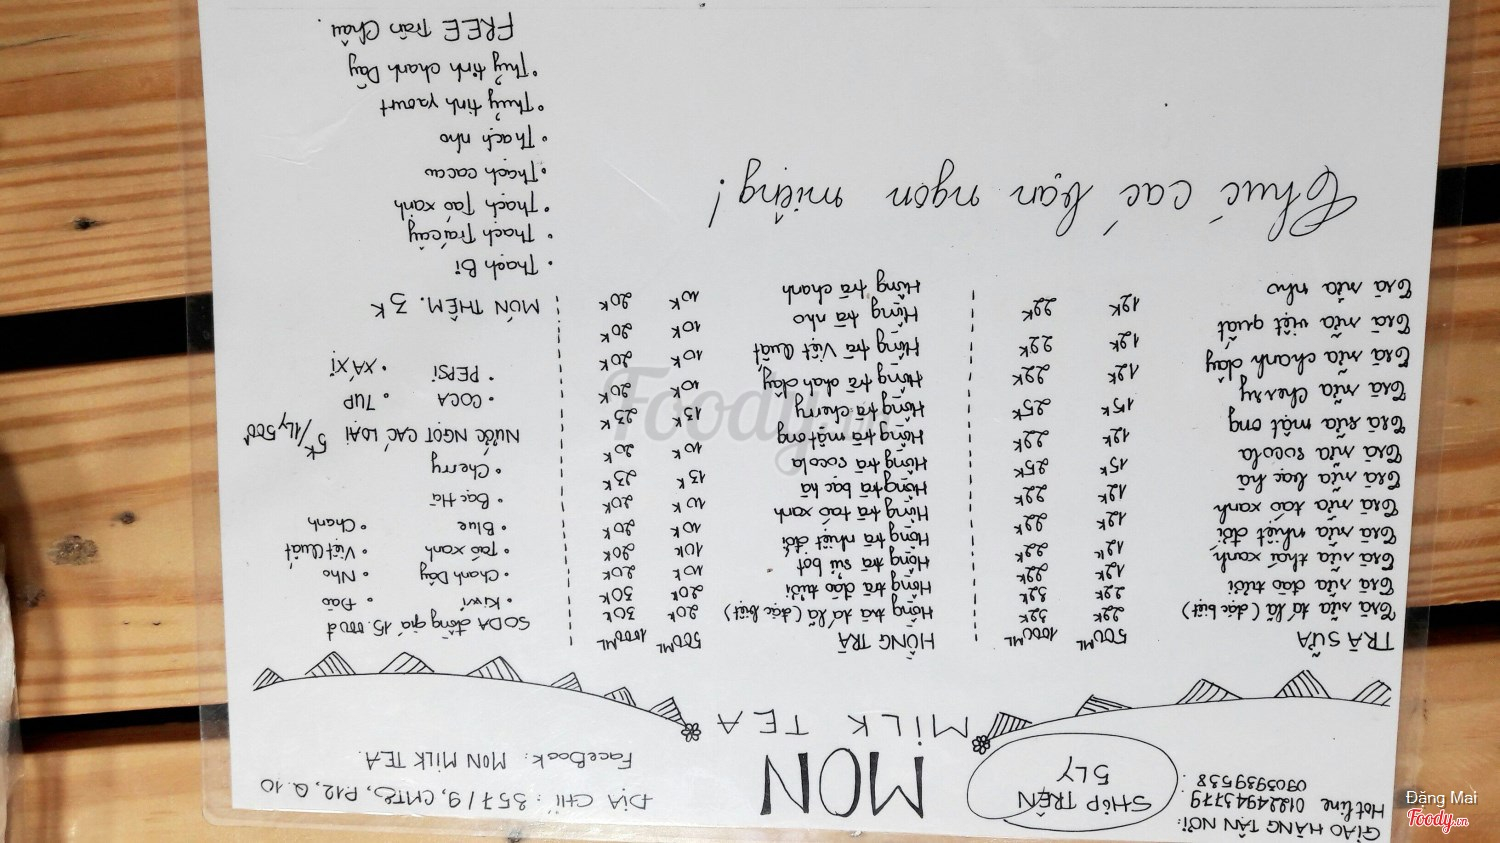 GIAO HÀNG TẬN NƠI:
Hotline 01224943779
0903939538
SHIP TRÊN
5 LY
MON
MILK TEA
ĐỊA CHỈ: 357/9, CMT8, P.12, Q.10
FaceBook: MON MILK TEA
TRÀ SỮA 500ML 1000ML
Trà sữa tá lả (đặc biệt) 22K 32K
Trà sữa đào tười 22K 32K
Trà sữa thái xanh 12K 22K
Trà sữa nhiệt đới 12K 22K
Trà sữa táo xanh 12K 22K
Trà sữa bạc hà 12K 22K
Trà sữa socola 15K 25K
Trà sữa mật ong 12K 22K
Trà sữa Cherry 15K 25K
Trà sữa chanh dây 12K 22K
Trà sữa việt quất 12K 22K
Trà sữa nho 12K 22K
HỒNG TRÀ 500ML 1000ML
Hồng trà tá lả (đặc biệt) 20K 30K
Hồng trà đào tười 20K 30K
Hồng trà sủi bọt 10K 20K
Hồng trà nhiệt đới 10K 20K
Hồng trà táo xanh 10K 20K
Hồng trà bạc hà 10K 20K
Hồng trà socola 13K 23K
Hồng trà mật ong 10K 20K
Hồng trà cherry 13K 23K
Hồng trà chah dây 10K 20K
Hồng trà Việt Quất 10K 20K
Hồng trà nho 10K 20K
Hồng trà chanh 10K 20K
SODA đồng giá 15.000đ
• Kiwi • Đào
• Chanh Dây • Nho
• Táo xanh • Việt Quất
• Blue • Chanh
• Bạc Hà
• Cherry
NƯỚC NGỌT CÁC LOẠI 5K/1Ly 500
• COCA • 7UP
• PEPSI • XÁ XỊ
MÓN THÊM. 3K
• Thạch Bi
• Thạch Trái cây
• Thạch Táo xanh
• Thạch cacao
• Thạch nho
• Thủy tinh yaourt
• Thủy tinh chanh Dây
FREE Trân Châu.
Chúc các bạn ngon miệng!
Foody.vn
Đặng Mai
Foody.vn